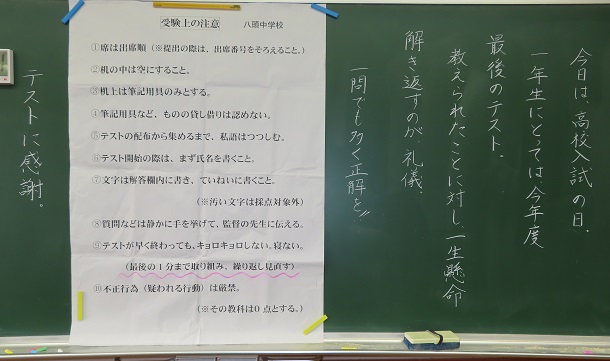 今日は、高校入試の日.
一年生にとっては今年度
最後のテスト.
教えられたことに対し、一生懸命
解き返すのが礼儀.
一問でも多く正解を!!
受験上の注意 八頭中学校
①席は出席順(※提出の際は、出席番号をそろえること。)
②机の中は空にすること。
③机上は筆記用具のみとする。
④筆記用具など、ものの貸し借りは認めない。
⑤テストの配布から集めるまで、私語はつつしむ。
⑥テスト開始の際は、まず氏名を書くこと。
⑦文字は解答欄内に書き、ていねいに書くこと。
(※汚い文字は採点対象外)
⑧質問などは静かに手を挙げて、監督の先生に伝える。
⑨テストが早く終わっても、キョロキョロしない。寝ない。
(最後の1分まで取り組み、繰り返し見直す)
⑩不正行為(疑われる行動)は厳禁。
(※その教科は0点とする。)
テストに感謝。